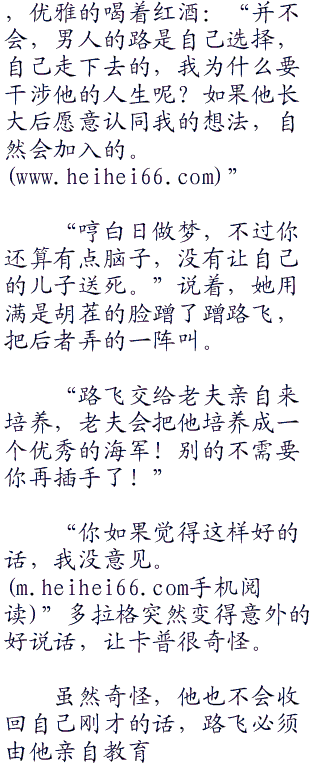 ，优雅的喝着红酒：“并不
会，男人的路是自己选择，
自己走下去的，我为什么要
干涉他的人生呢？如果他长
大后愿意认同我的想法，自
然会加入的。
(www.heihei66.com)”
“哼白日做梦，不过你
还算有点脑子，没有让自己
的儿子送死。”说着，她用
满是胡茬的脸蹭了蹭路飞，
把后者弄的一阵叫。
“路飞交给老夫亲自来
培养，老夫会把他培养成一
个优秀的海军！别的不需要
你再插手了！”
“你如果觉得这样好的
话，我没意见。
(m.heihei66.com手机阅
读)”多拉格突然变得意外的
好说话，让卡普很奇怪。
虽然奇怪，他也不会收
回自己刚才的话，路飞必须
由他亲自教育